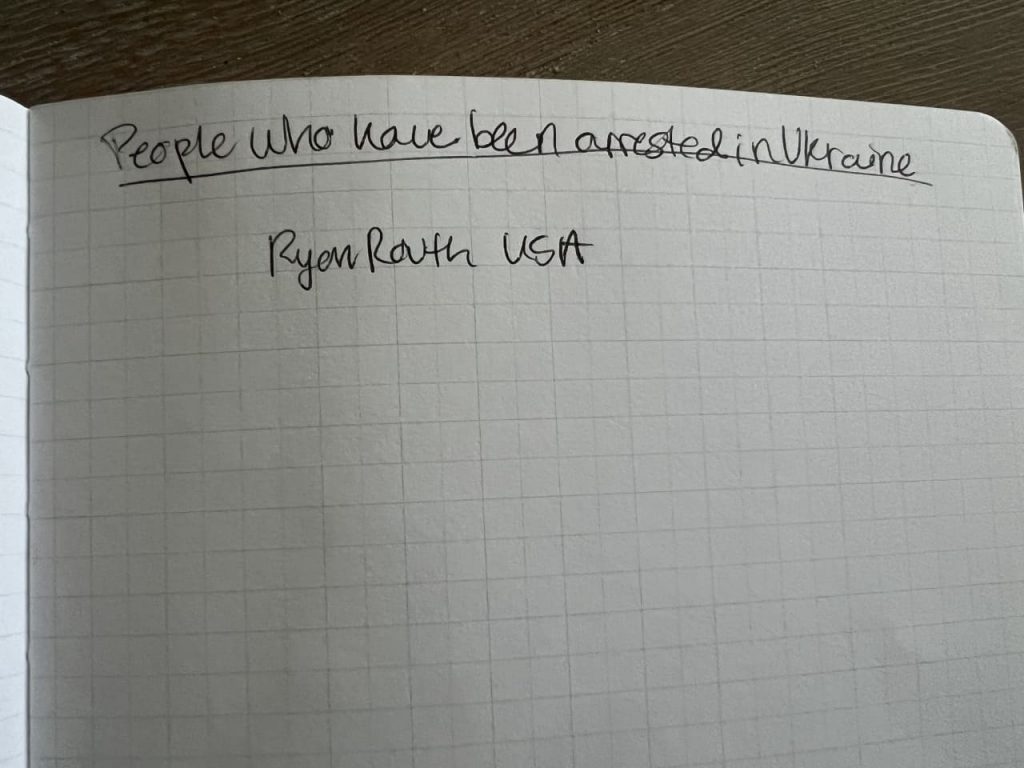 People who have been arrested in Ukraine
Ryan Routh USA